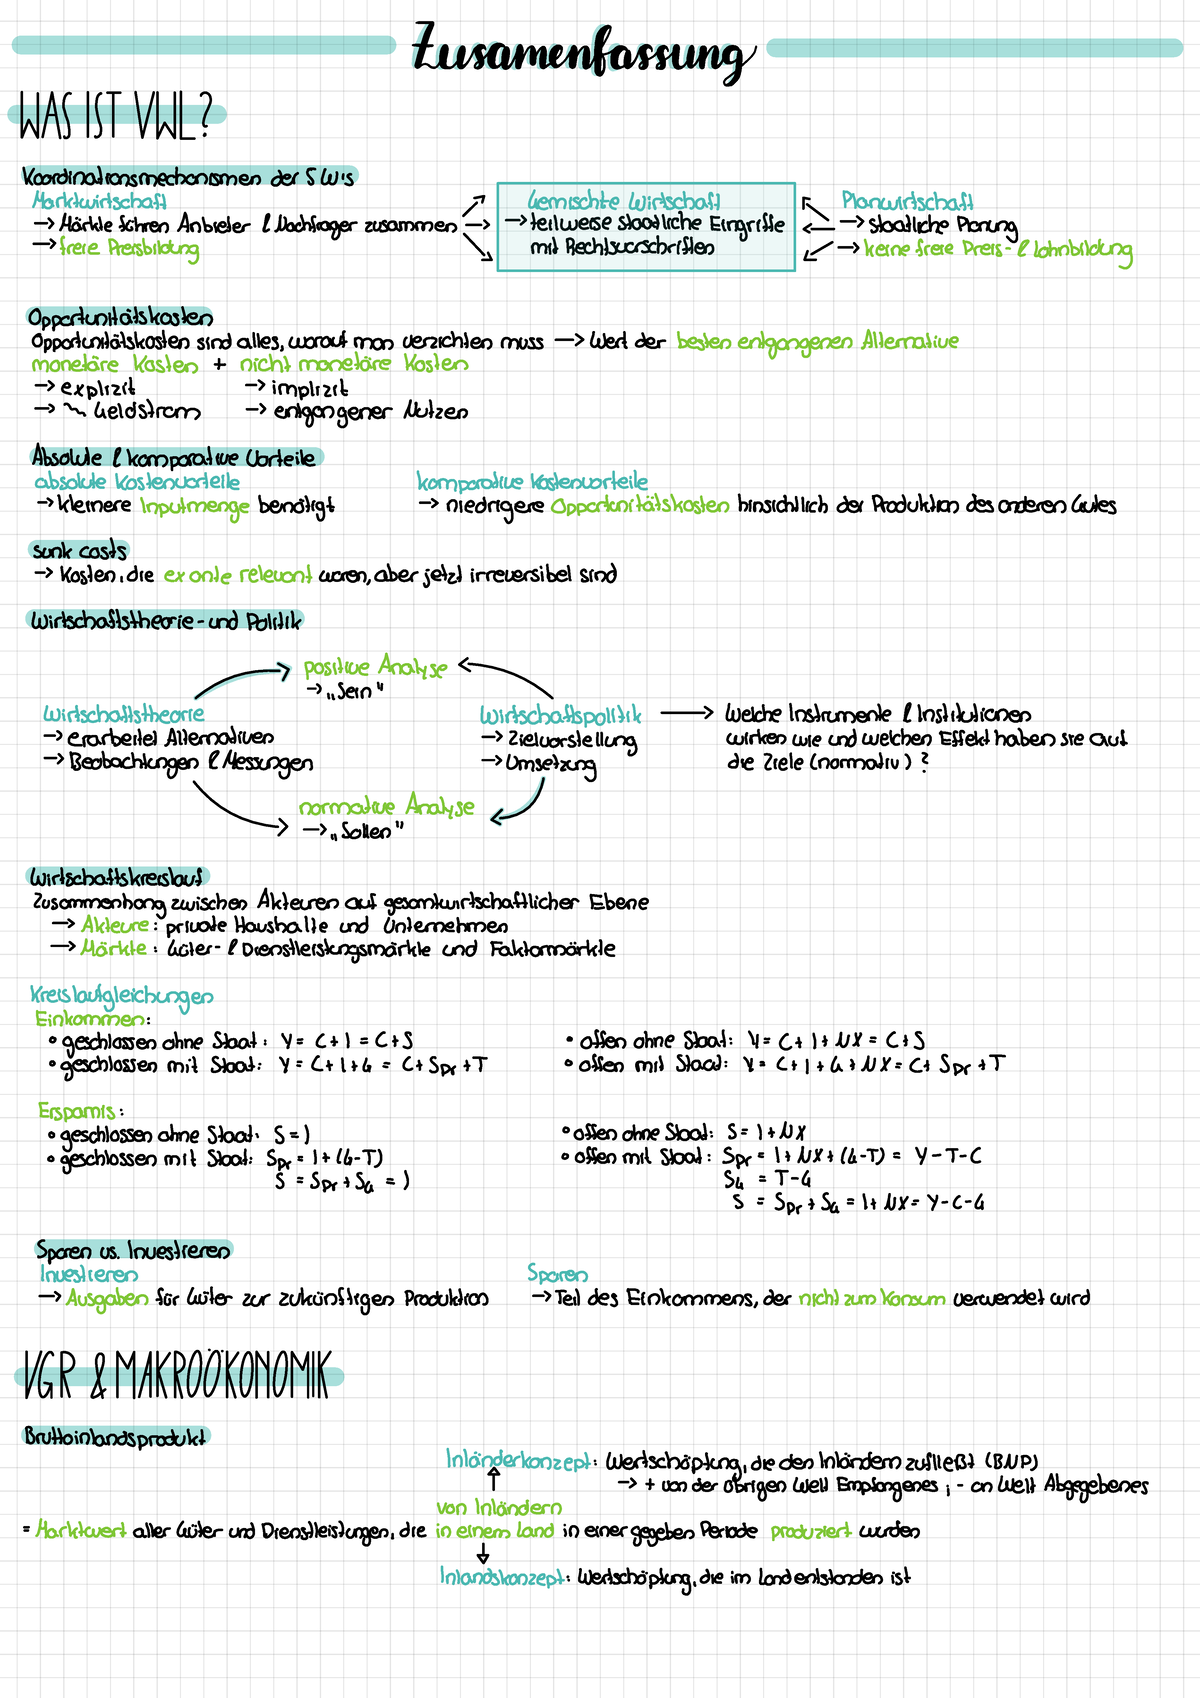 Zusamenfassung
WAS IST VWL?
Koordinationsmechanismen der SWis
Marktwirtschaft
→ Märkte führen Anbieter & Nachfrager zusammen
→ freie Preisbildung
Gemischte Wirtschaft
→ teilweise staatliche Eingriffe
mit Rechtsvorschriften
Planwirtschaft
→ staatliche Planung
→ keine freie Preis- & Lohnbildung
Opportunitätskosten
Opportunitätskosten sind alles, worauf man verzichten muss → Wert der besten entgangenen Alternative
monetäre Kosten + nicht monetäre Kosten
→ explizit → implizit
→ Geldstrom → entgangener Nutzen
Absolute & komparative Vorteile
absolute Kostenvorteile komparative Kostenvorteile
→ kleinere Inputmenge benötigt → niedrigere Opportunitätskosten hinsichtlich der Produktion des anderen Gutes
sunk costs
→ Kosten, die ex ante relevant waren, aber jetzt irreversibel sind
Wirtschaftstheorie- und Politik
positive Analyse
→ „Sein"
Wirtschaftstheorie
→ erarbeitet Alternativen
→ Beobachtungen & Messungen
Wirtschaftspolitik
→ Zielvorstellung
→ Umsetzung
→ Welche Instrumente & Institutionen
wirken wie und welchen Effekt haben sie auf
die Ziele (normativ)?
normative Analyse
→ „Sollen"
Wirtschaftskreislauf
Zusammenhang zwischen Akteuren auf gesamtwirtschaftlicher Ebene
→ Akteure: private Haushalte und Unternehmen
→ Märkte: Güter- & Dienstleistungsmärkte und Faktormärkte
Kreislaufgleichungen
Einkommen:
• geschlossen ohne Staat: Y = C + I = C + S
• geschlossen mit Staat: Y = C + I + G = C + Spr + T
• offen ohne Staat: Y = C + I + NX = C + S
• offen mit Staat: Y = C + I + G + NX = C + Spr + T
Ersparnis:
• geschlossen ohne Staat: S = I
• geschlossen mit Staat: Spr = I + (G-T)
S = Spr + SG = I
• offen ohne Staat: S = I + NX
• offen mit Staat: Spr = I + NX + (G-T) = Y - T - C
SG = T - G
S = Spr + SG = I + NX = Y - C - G
Sparen vs. Investieren
Investieren Sparen
→ Ausgaben für Güter zur zukünftigen Produktion → Teil des Einkommens, der nicht zum Konsum verwendet wird
VGR & MAKROÖKONOMIK
Bruttoinlandsprodukt
Inländerkonzept: Wertschöpfung, die den Inländern zufließt (BNP)
→ + von der übrigen Welt Empfangenes ; - an Welt Abgegebenes
von Inländern
= Marktwert aller Güter und Dienstleistungen, die in einem Land in einer gegeben Periode produziert wurden
Inlandskonzept: Wertschöpfung, die im Land entstanden ist